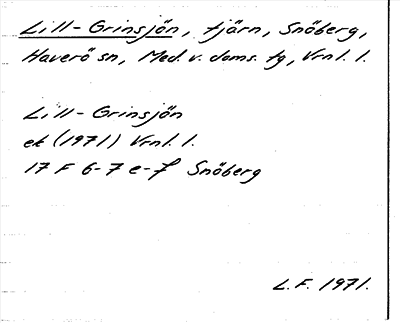 Lill-Grinsjön, tjärn, Snöberg,
Haverö sn, Med. v. doms. tg, Vrnl. l.
Lill-Grinsjön
ek (1971) Vrnl. l.
17 F 6-7 e-f Snöberg
L.F. 1971.